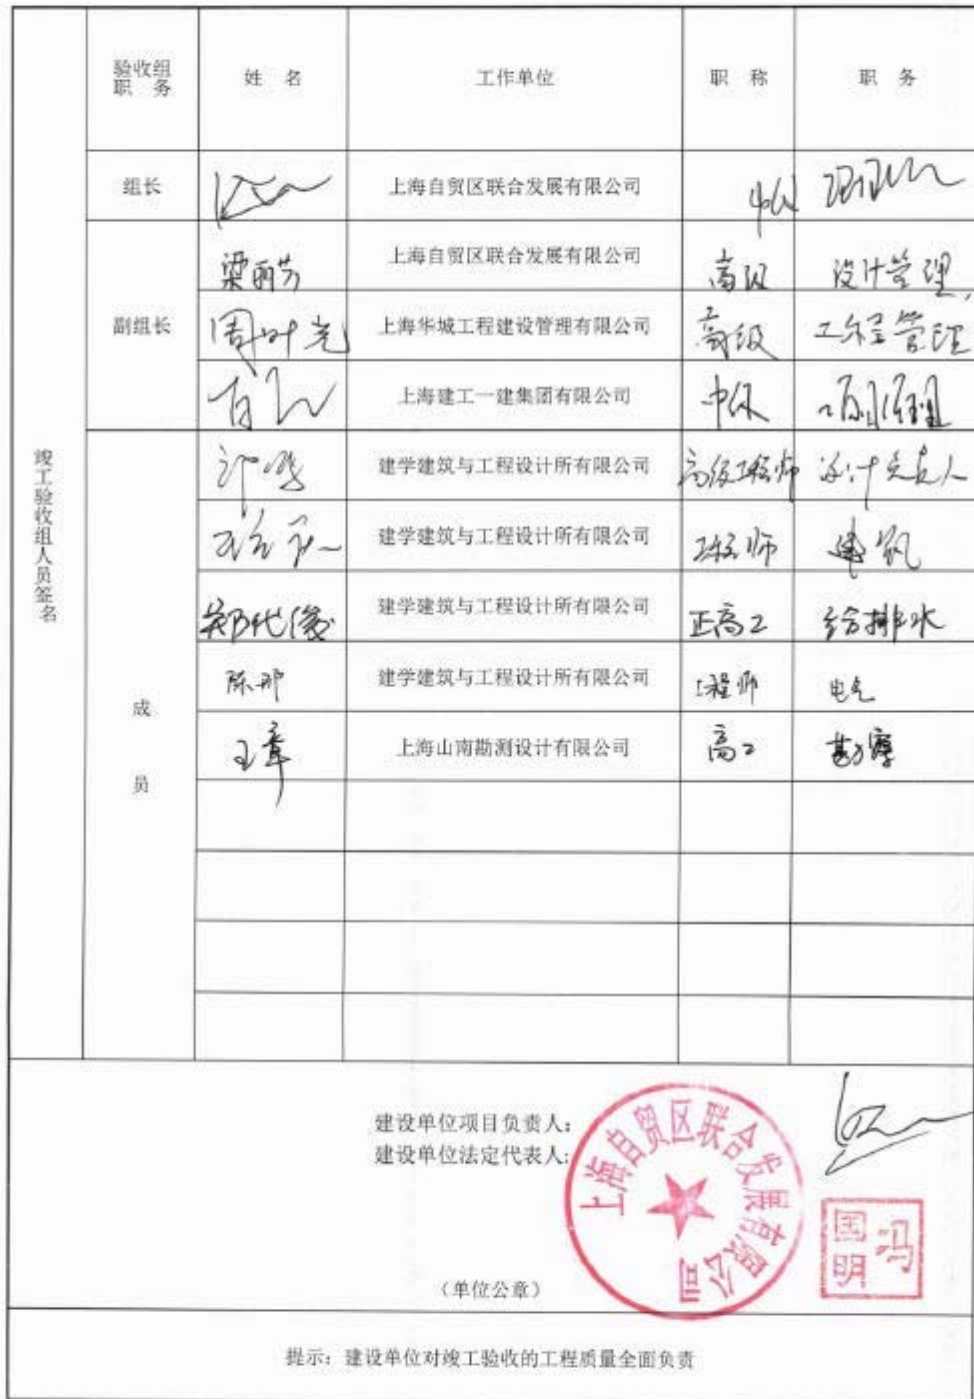 验收组职 务 姓 名 工作单位 职 称 职 务
竣工验收组人员签名
组长 上海自贸区联合发展有限公司
副组长
梁丽芳 上海自贸区联合发展有限公司 高级 设计管理
周叶光 上海华城工程建设管理有限公司 高级 工程管理
上海建工一建集团有限公司 中级 项目经理
成 员
建学建筑与工程设计所有限公司 高级工程师 设计负责人
建学建筑与工程设计所有限公司 工程师 建筑
郑代俊 建学建筑与工程设计所有限公司 正高工 给排水
陈那 建学建筑与工程设计所有限公司 工程师 电气
王章 上海山南勘测设计有限公司 高工 勘察
建设单位项目负责人:
建设单位法定代表人:
上海自贸区联合发展有限公司
冯国明
(单位公章)
提示:建设单位对竣工验收的工程质量全面负责